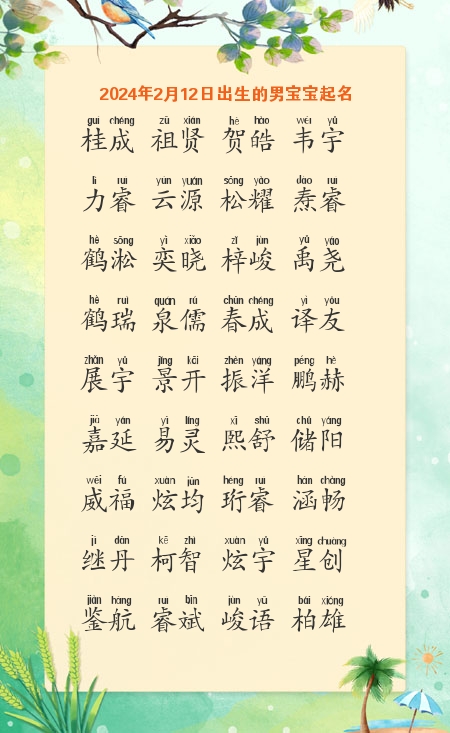 2024年2月12日出生的男宝宝起名
guì chéng zǔ xián hè hào wéi yǔ
桂成 祖贤 贺皓 韦宇
lì ruì yún yuán sōng yào dào ruì
力睿 云源 松耀 焘睿
hè sōng yì xiǎo zǐ jùn yǔ yáo
鹤淞 奕晓 梓峻 禹尧
hè ruì quán rú chūn chéng yì yǒu
鹤瑞 泉儒 春成 译友
zhǎn yǔ jǐng kāi zhèn yáng péng hè
展宇 景开 振洋 鹏赫
jiā yán yì líng xī shū chǔ yáng
嘉延 易灵 熙舒 储阳
wēi fú xuàn jūn héng ruì hán chàng
威福 炫均 珩睿 涵畅
jì dān kē zhì xuàn yǔ xīng chuàng
继丹 柯智 炫宇 星创
jiàn háng ruì bīn jùn yǔ bǎi xióng
鉴航 睿斌 峻语 柏雄